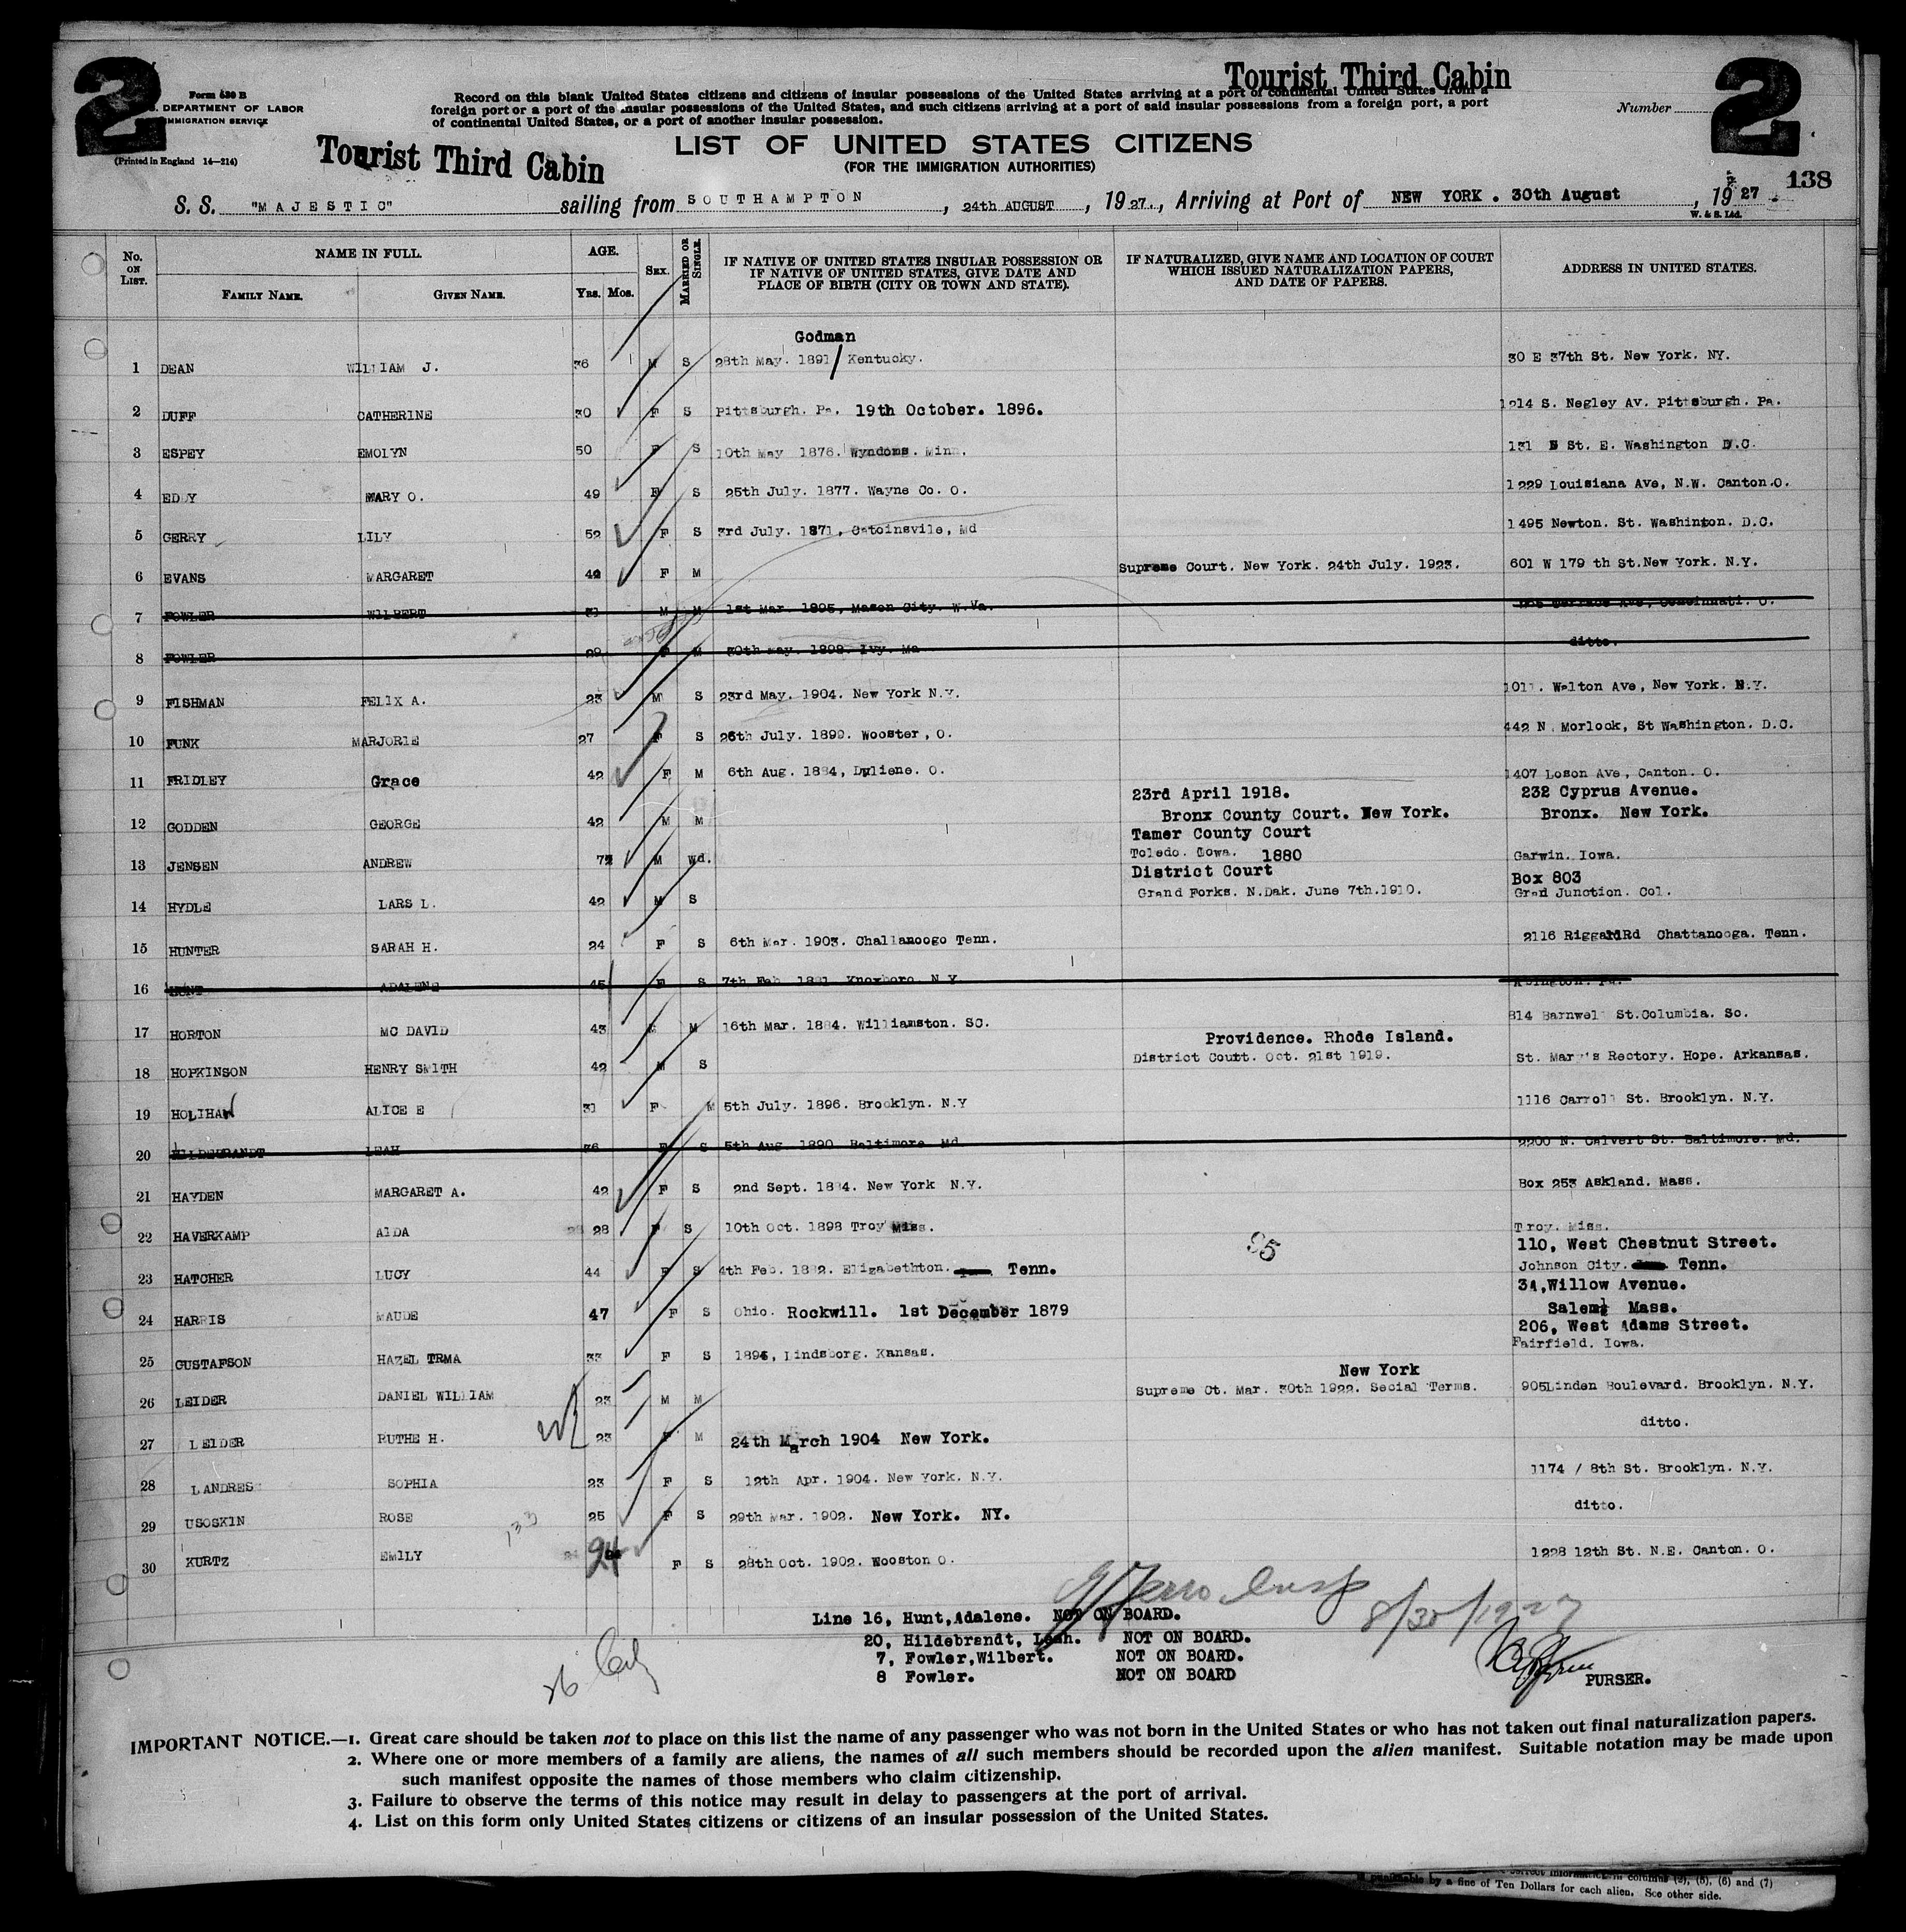 2
2
Form 630 B
DEPARTMENT OF LABOR
IMMIGRATION SERVICE
(Printed in England 14—214)
Tourist Third Cabin
Tourist Third Cabin
Record on this blank United States citizens and citizens of insular possessions of the United States arriving at a port of continental United States from a
foreign port or a port of the insular possessions of the United States, and such citizens arriving at a port of said insular possessions from a foreign port, a port
of continental United States, or a port of another insular possession.
Number
LIST OF UNITED STATES CITIZENS
(FOR THE IMMIGRATION AUTHORITIES)
138
S. S. "MAJESTIC" sailing from SOUTHAMPTON, 24th AUGUST, 1927., Arriving at Port of NEW YORK. 30th August, 1927
W. & S. Ltd.
No. ON LIST. NAME IN FULL. AGE. SEX. MARRIED OR SINGLE. IF NATIVE OF UNITED STATES INSULAR POSSESSION OR IF NATIVE OF UNITED STATES, GIVE DATE AND PLACE OF BIRTH (CITY OR TOWN AND STATE). IF NATURALIZED, GIVE NAME AND LOCATION OF COURT WHICH ISSUED NATURALIZATION PAPERS, AND DATE OF PAPERS. ADDRESS IN UNITED STATES.
FAMILY NAME. GIVEN NAME. YRS. MOS.
Godman
1 DEAN WILLIAM J. 36 M S 28th May. 1891/ Kentucky. 30 E 37th St. New York. NY.
2 DUFF CATHERINE 30 F S Pittsburgh. Pa. 19th October. 1896. 1214 S. Negley Av. Pittsburgh. Pa.
3 ESPEY EMOLYN 50 F S 10th May 1876. Wyndoms. Minn. 131 St. E. Washington D.C.
4 EDDY MARY O. 49 F S 25th July. 1877. Wayne Co. O. 1229 Louisiana Ave, N.W. Canton.O.
5 GERRY LILY 52 F S 3rd July. 1871, Catoinsvile, Md 1495 Newton. St. Washinton. D.C.
6 EVANS MARGARET 42 F M Supreme Court. New York. 24th July. 1923. 601 W 179 th St.New York. N.Y.
7 FOWLER WILBERT 31 M M 1st Mar. 1895, Mason City. W.Va. Terrace Ave, Concinnati. O.
8 FOWLER 29 F M 30th May. 1898. Ivy. Ma ditto.
9 FISHMAN FELIX A. 23 M S 23rd May. 1904. New York N.Y. 1011. Walton Ave, New York. N.Y.
10 FUNK MARJORIE 27 F S 26th July. 1899. Wooster, O. 442 N. Morlock, St Washington. D.C.
11 FRIDLEY Grace 42 F M 6th Aug. 1884, Dyliene. O. 1407 Loson Ave, Canton. O.
23rd April 1918. 232 Cyprus Avenue.
12 GODDEN GEORGE 42 M M Bronx County Court. New York. Bronx. New York.
Tamer County Court
13 JENSEN ANDREW 72 M Wd. Toledo. Iowa. 1880 Garwin. Iowa.
District Court Box 803
14 HYDLE LARS L. 42 M S Grand Forks. N.Dak. June 7th.1910. Grand Junction. Col.
15 HUNTER SARAH H. 24 F S 6th Mar. 1903. Challanoogo Tenn. 2116 Riggard Rd Chattanooga. Tenn.
16 HUNT ADALENE 45 F S 7th Feb 1881 Knoxboro N.Y Abington. Pa.
17 HORTON MC DAVID 43 M 16th Mar. 1884. Williamston. SC. 814 Barnwell St.Columbia. Sc.
Providence. Rhode Island.
18 HOPKINSON HENRY SMITH 42 M S District Court. Oct. 21st 1919. St. Mary's Rectory. Hope. Arkansas.
19 HOLIHAN ALICE E 31 F M 5th July. 1896. Brooklyn. N.Y 1116 Carroll St. Brooklyn. N.Y.
20 HILDEBRANDT LEAH 36 F S 5th Aug 1890 Baltimore Md 2200 N. Calvert St. Baltimore. Md.
21 HAYDEN MARGARET A. 42 F S 2nd Sept. 1884. New York N.Y. Box 253 Askland. Mass.
22 HAVERKAMP AIDA 28 F S 10th Oct. 1898 Troy Miss. Troy. Miss.
95
110, West Chestnut Street.
23 HATCHER LUCY 44 F S 4th Feb. 1882. Elizabethton. Tenn. Johnson City. Tenn.
34, Willow Avenue.
24 HARRIS MAUDE 47 F S Ohio. Rockwill. 1st December 1879 Salem Mass.
206, West Adams Street.
25 GUSTAFSON HAZEL IRMA 33 F S 1894, Lindsborg. Kansas. Fairfield. Iowa.
New York
26 LEIDER DANIEL WILLIAM 23 M M Supreme Ct. Mar. 30th 1922. Secial Terms. 905Linden Boulevard. Brooklyn. N.Y.
27 LEIDER RUTHE H. 23 F M 24th March 1904 New York. ditto.
28 LANDRES SOPHIA 23 F S 12th Apr. 1904. New York. N.Y. 1174 / 8th St. Brooklyn. N.Y.
29 USOSKIN ROSE 25 F S 29th Mar. 1902. New York. NY. ditto.
133
30 KURTZ EMILY 24 F S 28th Oct. 1902. Wooston O. 1228 12th St. N.E. Canton. O.
8/30/1927
Line 16, Hunt,Adalene. NOT ON BOARD.
20, Hildebrandt, Leah. NOT ON BOARD.
7, Fowler,Wilbert. NOT ON BOARD.
8 Fowler. NOT ON BOARD
PURSER.
IMPORTANT NOTICE.—1. Great care should be taken not to place on this list the name of any passenger who was not born in the United States or who has not taken out final naturalization papers.
2. Where one or more members of a family are aliens, the names of all such members should be recorded upon the alien manifest. Suitable notation may be made upon
such manifest opposite the names of those members who claim citizenship.
3. Failure to observe the terms of this notice may result in delay to passengers at the port of arrival.
4. List on this form only United States citizens or citizens of an insular possession of the United States.
correct information in columns (2), (5), (6) and (7)
is punishable by a fine of Ten Dollars for each alien. See other side.